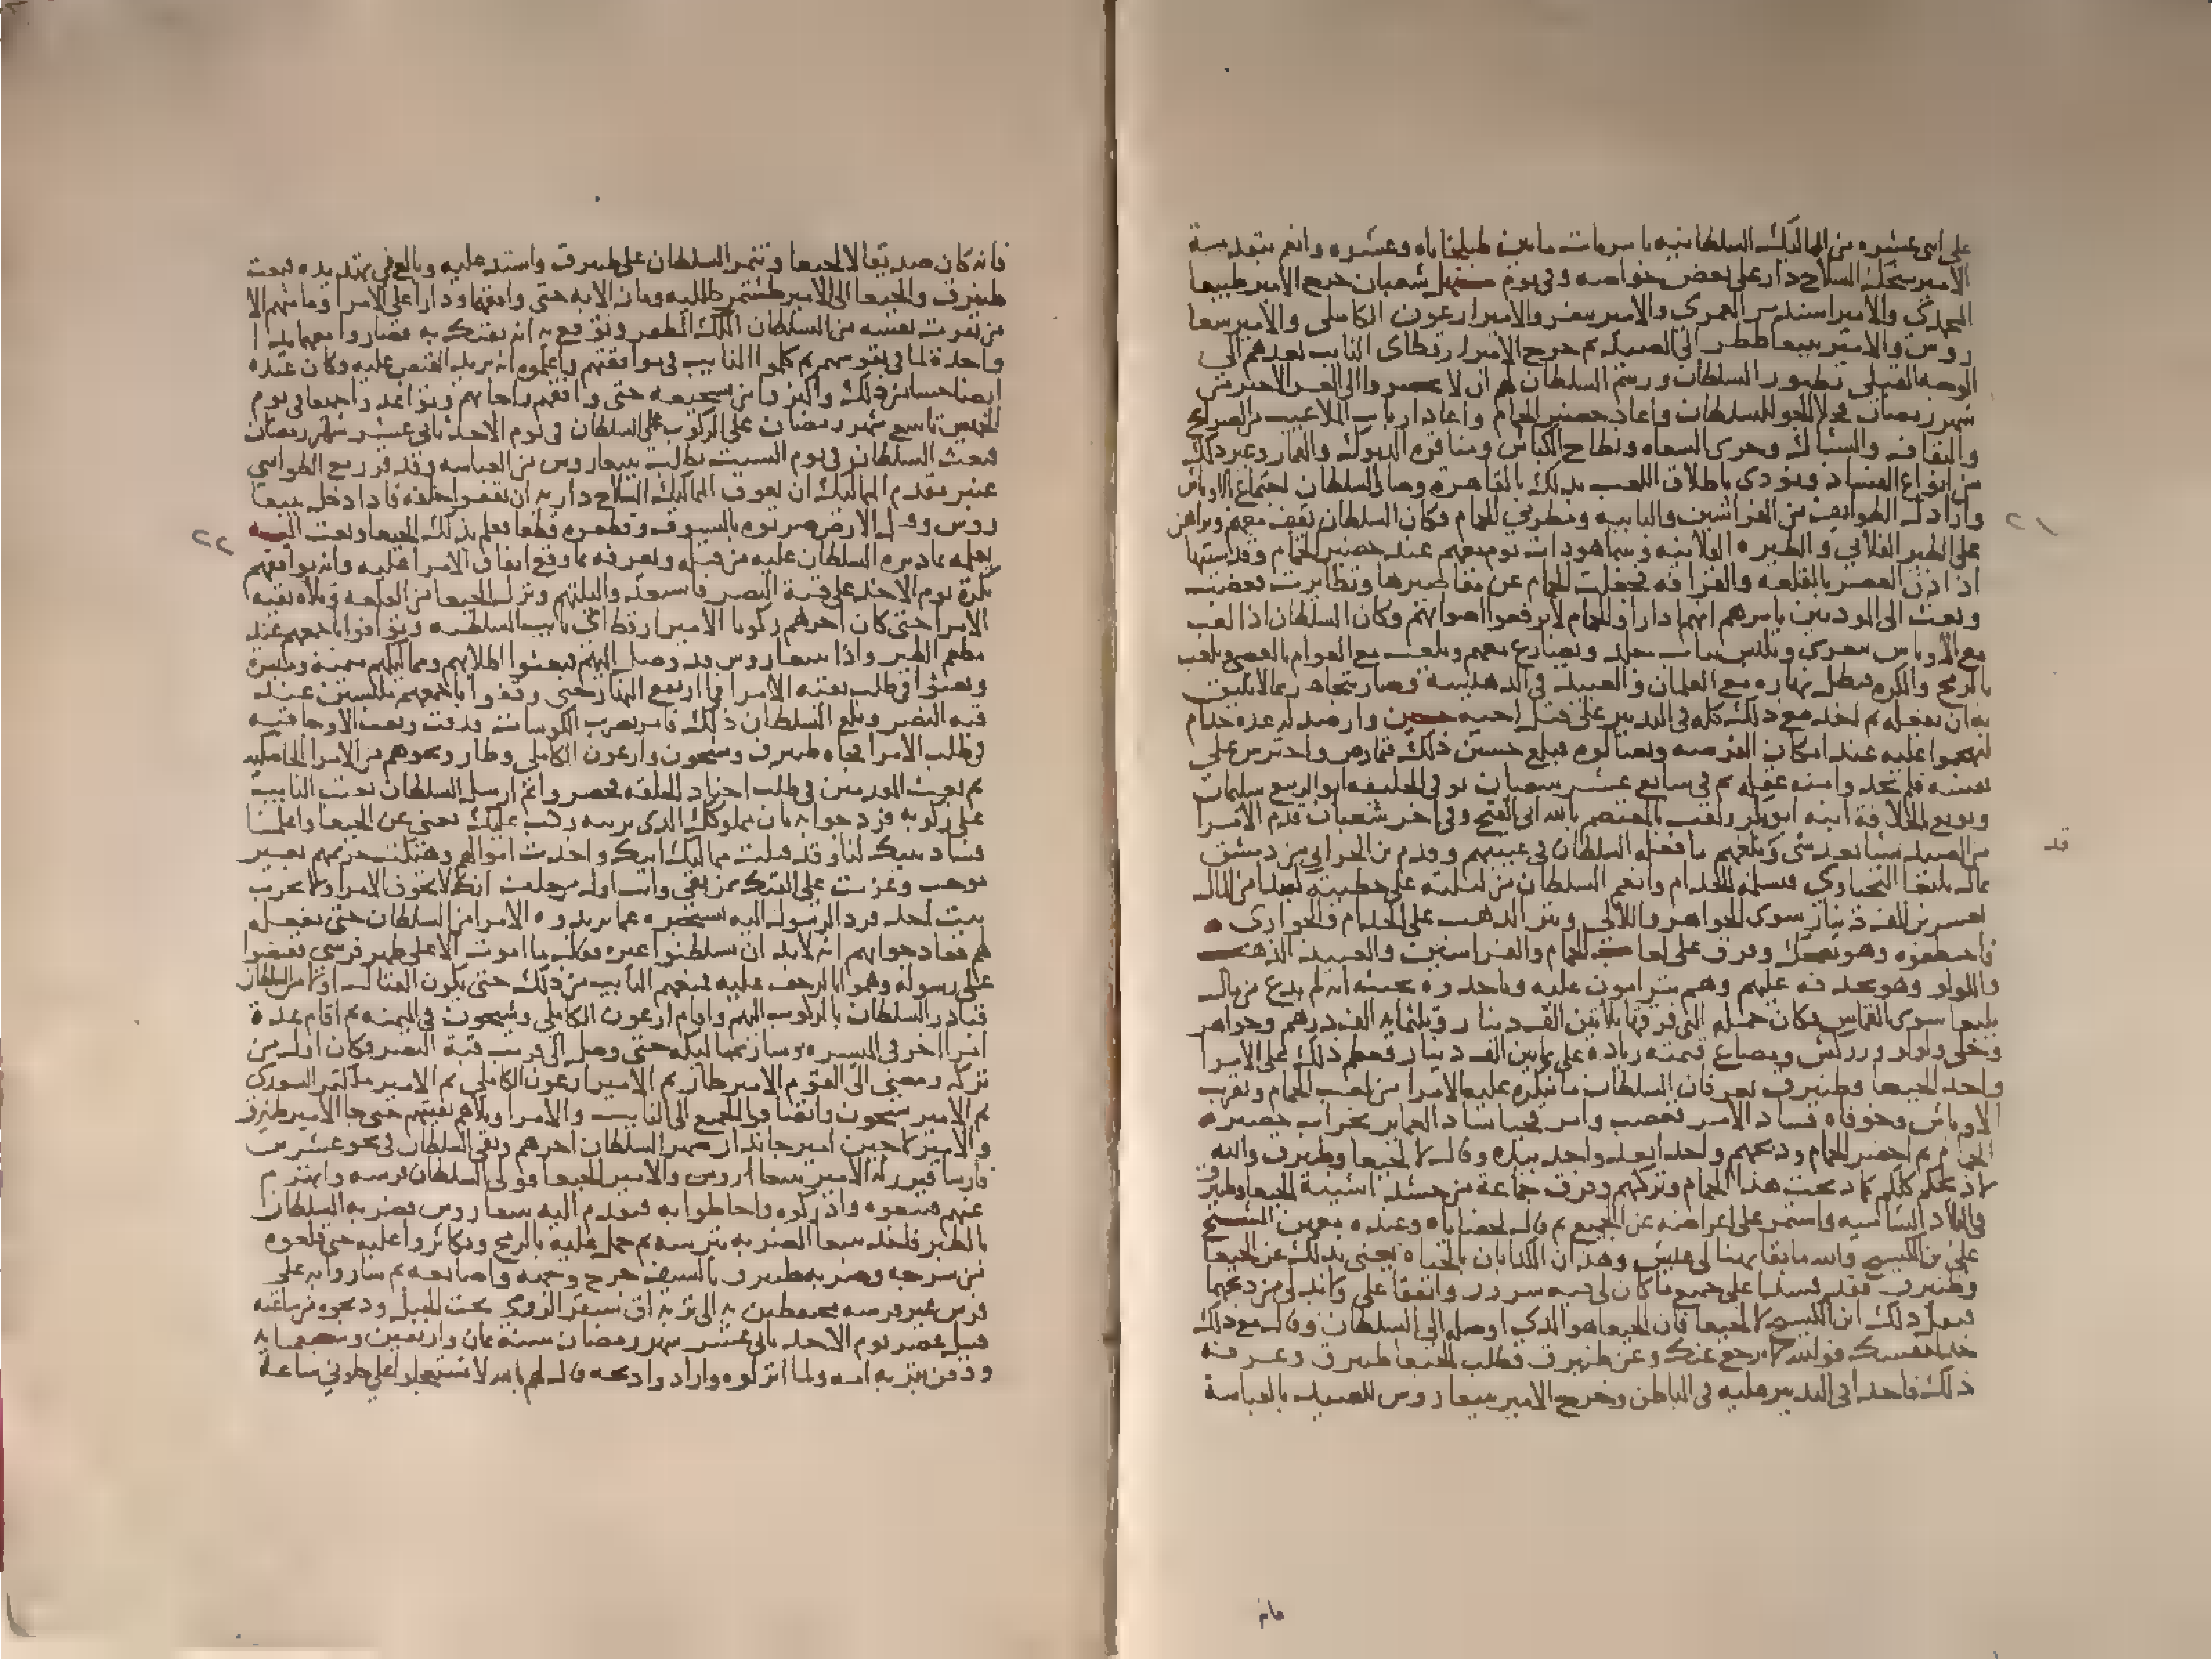 على اثنى عشره من المماليك السلطانيه بامريات مابين طبلخاناه وعشره وانعم بتقدمة
الامير السلاح دار على بعض خواصه وفي يوم مستهل شعبان خرج الامير طيبغا
المجدي والامير اسندمر العمري والامير والامير ارغون الكاملي والامير بيبغا
روس والامير بيبغا ططر الى الصيد ثم خرج الامير ارقطاى النايب بعدهم الى
الوجه القبلي بطيور السلطان ورسم السلطان لهم ان لا يحضروا الى العشر الاخير من
شهر رمضان فخلا الجو للسلطان واعاد حضير الحمام واعاد ارباب الملاعيب من الصراع
والثقاف والشباك وجرى السعاه ونطاح الكباش ومناقرة الديوك والقمار وغير ذلك
من انواع الفساد ونودي باطلاق اللعب بذلك بالقاهرة وصار للسلطان اجتماع بالاوباش
واراذل الطوايف من الفراشين والبابيه ومطيري الحمام فكان السلطان يقف معهم ويراهن
على الطير الفلاني والطيره الفلانيه وبينما هو ذات يوم معهم عند حضير الحمام وقد سيبها
اذ اذن العصر بالقلعه والقرافه فجفلت الحمام عن مقاصيرها وتطايرت فغضب
وبعث الى المودنين يامرهم انهم اذا راوا الحمام لا يرفعوا اصواتهم وكان السلطان اذا لعب
مع الاوباش يتعرى ويلبس تبان جلد ويصارع معهم ويلعب مع العوام بالعصي ويلعب
بالرمح والكره فيظل نهاره مع الغلمان والعبيد في الدهليشه وصار يتجاهر بما لا يليق
به ان يفعله ثم اخذ مع ذلك كله في التدبير على قتل اخيه حسين وارصد له عدة خدام
ليهجموا عليه عند امكان الفرصه ويغتالوه فبلغ حسين ذلك فتمارض واحترس على
نفسه فلم يجدوا منه غفله ثم في سابع عشر شعبان توفي الخليفه ابو الربيع سليمان
وبويع بالخلافة ابنه ابو بكر ولقب بالمعتصم بالله ابى الفتح وفي اخر شعبان قدم الامرا
من الصيد شيا بعد شي وبلغهم ما فعله السلطان في غيبتهم وقدم بن الحراني من دمشق
بمال يلبغا اليحياوي فتسلمه الخدام وانعم السلطان من ليلته على حظيته كيدا من المال
بعشرين الف دينار سوى الجواهر واللالي ونثر الذهب على الخدام والجواري
فاختطفوه وهو يضحك وفرق على لعاب الحمام والفراشين والعبيد الذهب
واللولو وهو يحذفه عليهم وهم يترامون عليه وياخذوه بحيث انه لم يدع من مال
يلبغا سوى القماش فكان جمله التي فرقها ثلاثين الف دينار وثلثمايه الف درهم وجواهر
وحلى ولولو وزركش ومصاغ قيمته زيادة على ثمانين الف دينار فعظم ذلك على الامرا
واخذ الجيبغا وطنيرق يعرفان السلطان ما ينكره عليه الامرا من لعب الحمام وتقريب
الاوباش وخوفاه فساد الامر فغضب وامر اقجبا شاد العماير بخراب حضيره
الحمام ثم احضر الحمام وذبحهم واحدا بعد واحد بيده وقال لالجيبغا وطنيرق والله
لاذبحكم كلكم كما ذبحت هذا الحمام وتركهم وفرق جماعة من خشداشية الجيبغا وطنيرق
في البلاد الشاميه واستمر على اعراضه عن الجميع ثم قال لحظاياه وعنده معهن الشيخ
علي بن الكسيح والله ما بقا يهنا لي عيش وهذان الكدابان بالحياه يعني بذلك عن الجيبغا
وطنيرق فقد افسدا على جميع ما كان لي فيه سرور واتفقا على وكاني بي من ذبحهما
فبعث ذلك ابن الكسيح لالجيبغا فان الجيبغا هو الذي اوصله الى السلطان وقال مع ذلك
خد لنفسك فوالله لا يرجع عنك وعن طنيرق فطلب الجيبغا طنيرق وعرفه
ذلك فاخذا في التدبير عليه في الباطن وخرج الامير بيبغا روس للصيد بالعباسة
٢١
قد
فانه
فانه كان صديقا لالجيبغا وتنمر السلطان على طنيرق واشتد عليه وبالغ في تهديده فبعث
طنيرق والجيبغا الى الامير طشتمر طلليه ومازالا به حتى وافقهما ودارا على الامرا وما منهم الا
من نفرت نفسه من السلطان الملك المظفر وتوقع به انه يفتك به فصاروا معهما يدا
واحدة لما في نفوسهم ثم كلموا النايب في موافقتهم واعلموه انه يريد القبض عليه وكان عنده
ايضا حساسا من ذلك واكثروا من تشجيعه حتى وافقهم واجابهم وتواعدوا جميعا في يوم
الخميس تاسع شهر رمضان على الركوب على السلطان في يوم الاحد ثاني عشر شهر رمضان
فبعث السلطان في يوم السبت يطلب بيبغاروس من العباسه وقد قرر مع الطواشي
عنبر مقدم المماليك ان يعرف المماليك السلاح داريه ان يقفوا خلفه فاذا دخل بيبغا
روس وقبل الارض ضربوه بالسيوف وقطعوه قطعا فعلم بذلك الجيبغا وبعث اليه
يعلمه بما دبره السلطان عليه من قتله ويعرفه بما وقع اتفاق الامرا عليه وانه يوافيهم
بكرة يوم الاحد على قبة النصر فاستعد واليلتهم ونزل الجيبغا من القلعه وتلاه بقية
الامرا حتى كان اخرهم ركوبا الامير ارقطاى نايب السلطنه وتوافوا باجمعهم عند
مطعم الطير واذا بيبغاروس قد وصل اليهم فبعثوا اطلابهم ومماليكهم ميمنة وميسرة
وبعثوا في طلب بقية الامرا فما ارتفع النهار حتى وقفوا باجمعهم ملبسين عند
قبة النصر وبلغ السلطان ذلك فامر بضرب الكوسات فدقت وبعث الاوجاقيه
في طلب الامرا فجاه طنيرق وشيخون وارغون الكاملي وطاز ونحوهم من الامرا الخاصكيه
ثم بعث المقدمين في طلب اجناد الحلقه فحضروا ثم ارسل السلطان يعتب النايب
على ركوبه فرد جوابه بان مملوكك الذي ربيته ركب عليك يعني عن الجيبغا واعلمنا
فساد نيتك لنا وقد قتلت مماليك ابيك واخذت اموالهم وهتكت حريمهم بغير
موجب وعزمت على الفتك بمن بقي وانت اول من حلف انك لا تخون الامرا ولا تخرب
بيت احد فرد الرسول اليه يستخبره عما يريدوه الامرا من السلطان حتى يفعله
لهم فعاد جوابهم انه لابد ان يسلطنوا غيره فقال ما اموت الا على ظهر فرسي فقبضوا
على رسوله وهموا بالزحف عليه فمنعهم النايب من ذلك حتى يكون القتال اولا من السلطان
فبادر السلطان بالركوب اليهم واقام ارغون الكاملي وشيخون في الميمنه ثم اقام عدة
امرا اخر في الميسره وسار بمماليكه حتى وصل الى قريب قبة النصر فكان اول من
تركه ومضى الى القوم الامير طاز ثم الامير ارغون الكاملي ثم الامير ملكتمر السعدى
ثم الامير شيخون وانضافوا الجميع الى النايب والامرا وتلاهم بقيتهم حتى جا الامير طنيرق
والامير لاجين امير جاندار صهر السلطان اخرهم وبقي السلطان في نحو عشرين
فارسا فبرز له الامير بيبغا روس والامير الجيبغا فولى السلطان فرسه وانهزم
عنهم فتبعوه وادركوه واحاطوا به فتقدم اليه بيبغا روس فضربه السلطان
بالطبر فاخذ بيبغا الضربه بترسه ثم حمل عليه بالرمح وتكاثروا عليه حتى قلعوه
من سرجه وضربه طنيرق بالسيف جرح وجهه واصابعه ثم ساروا به على
فرس غير فرسه محتفظين به الى تربة اق سنقر الرومي تحت الجبل وذبحوه من ساعته
قبل عصر يوم الاحد ثاني عشر شهر رمضان سنة ثمان واربعين وسبعمايه
ودفن بتربة امه ولما انزلوه وارادوا ذبحه قال لهم بالله لا تستعجلوا على خلوني ساعة
٢٢